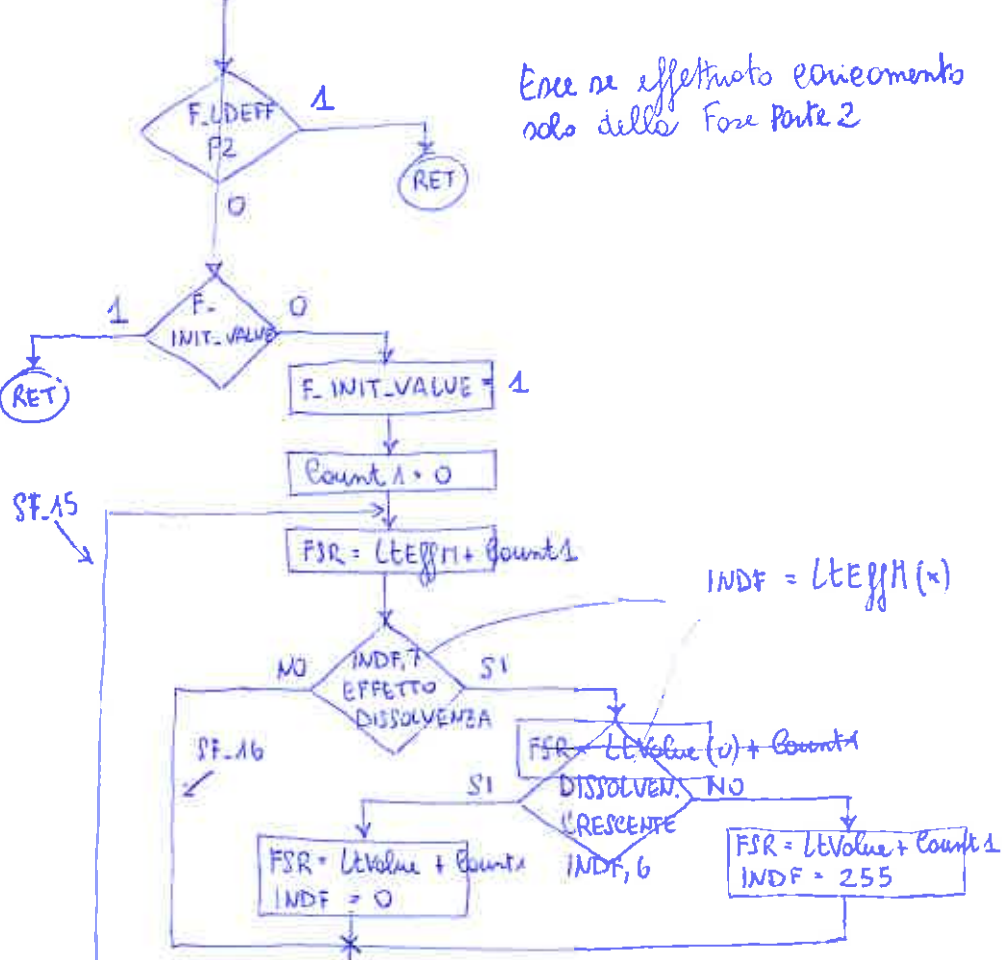 F_LDEFF
P2
1
Esce se effettuato caricamento
solo della Fase Parte 2
RET
0
1
F_
INIT_VALUE
0
RET
F_INIT_VALUE = 1
Count1 = 0
SF_15
FSR = LtEffM + Count1
INDF = LtEffM(x)
NO
INDF,7
EFFETTO
DISSOLVENZA
SI
SF_16
FSR = LtValue (0) + Count1
SI
DISSOLVEN.
CRESCENTE
INDF,6
NO
FSR = LtValue + Count1
INDF = 0
FSR = LtValue + Count1
INDF = 255